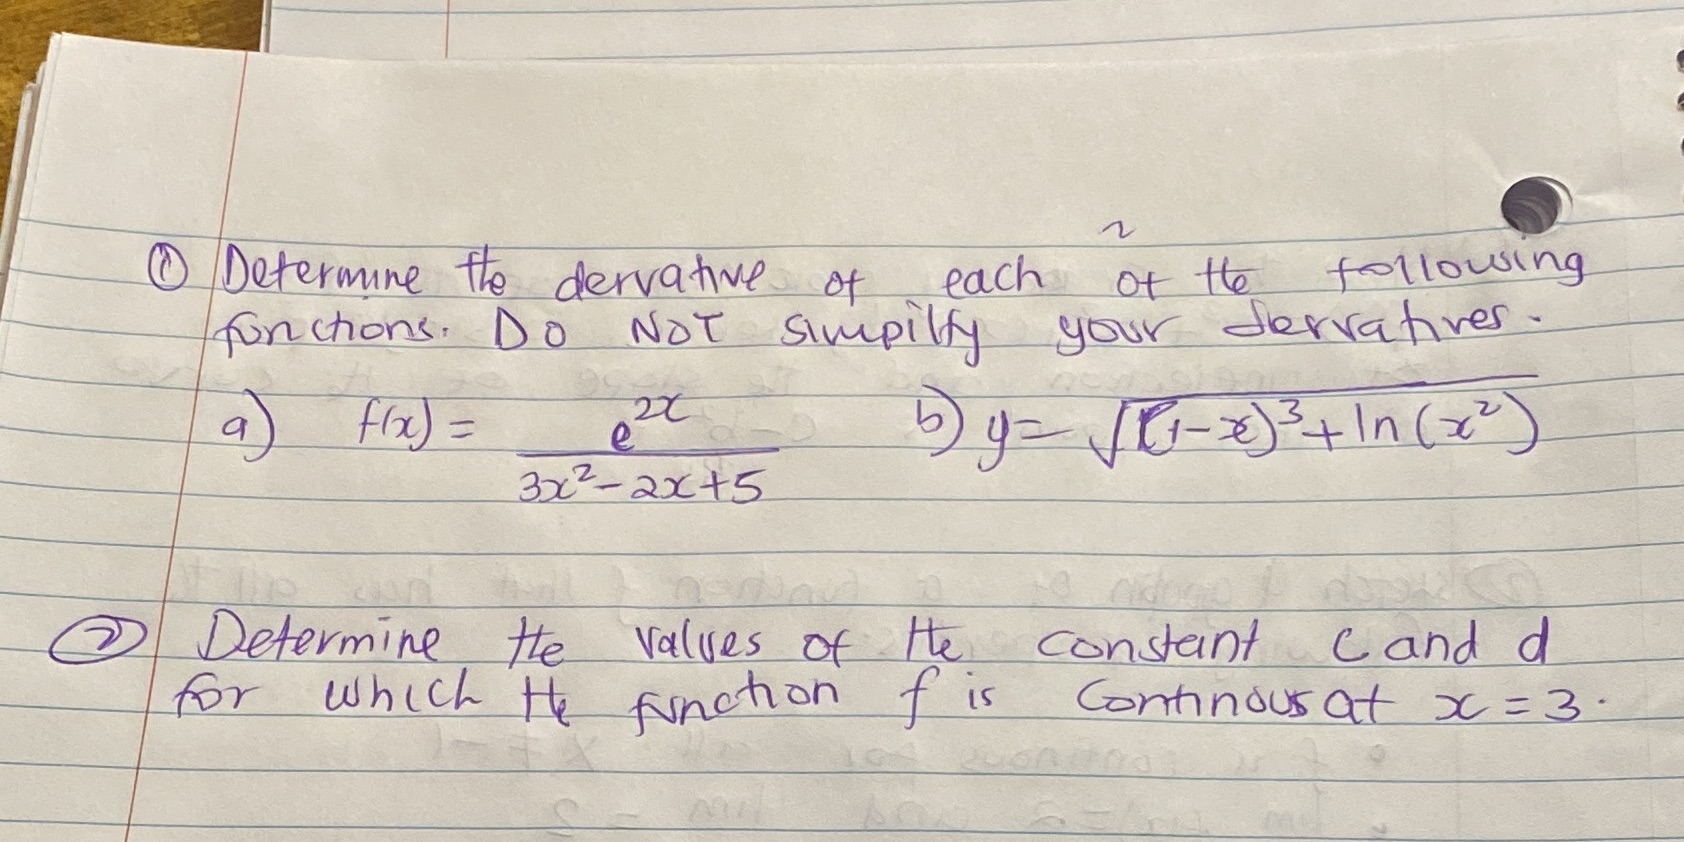 ① Determine the dervative of each of the following
functions. Do NOT simpilfy your dervatives.
a) f(x) = e^2x / 3x²-2x+5 b) y= √((1-x)³+ln(x²))
② Determine the values of the constant c and d
for which the function f is continous at x = 3.